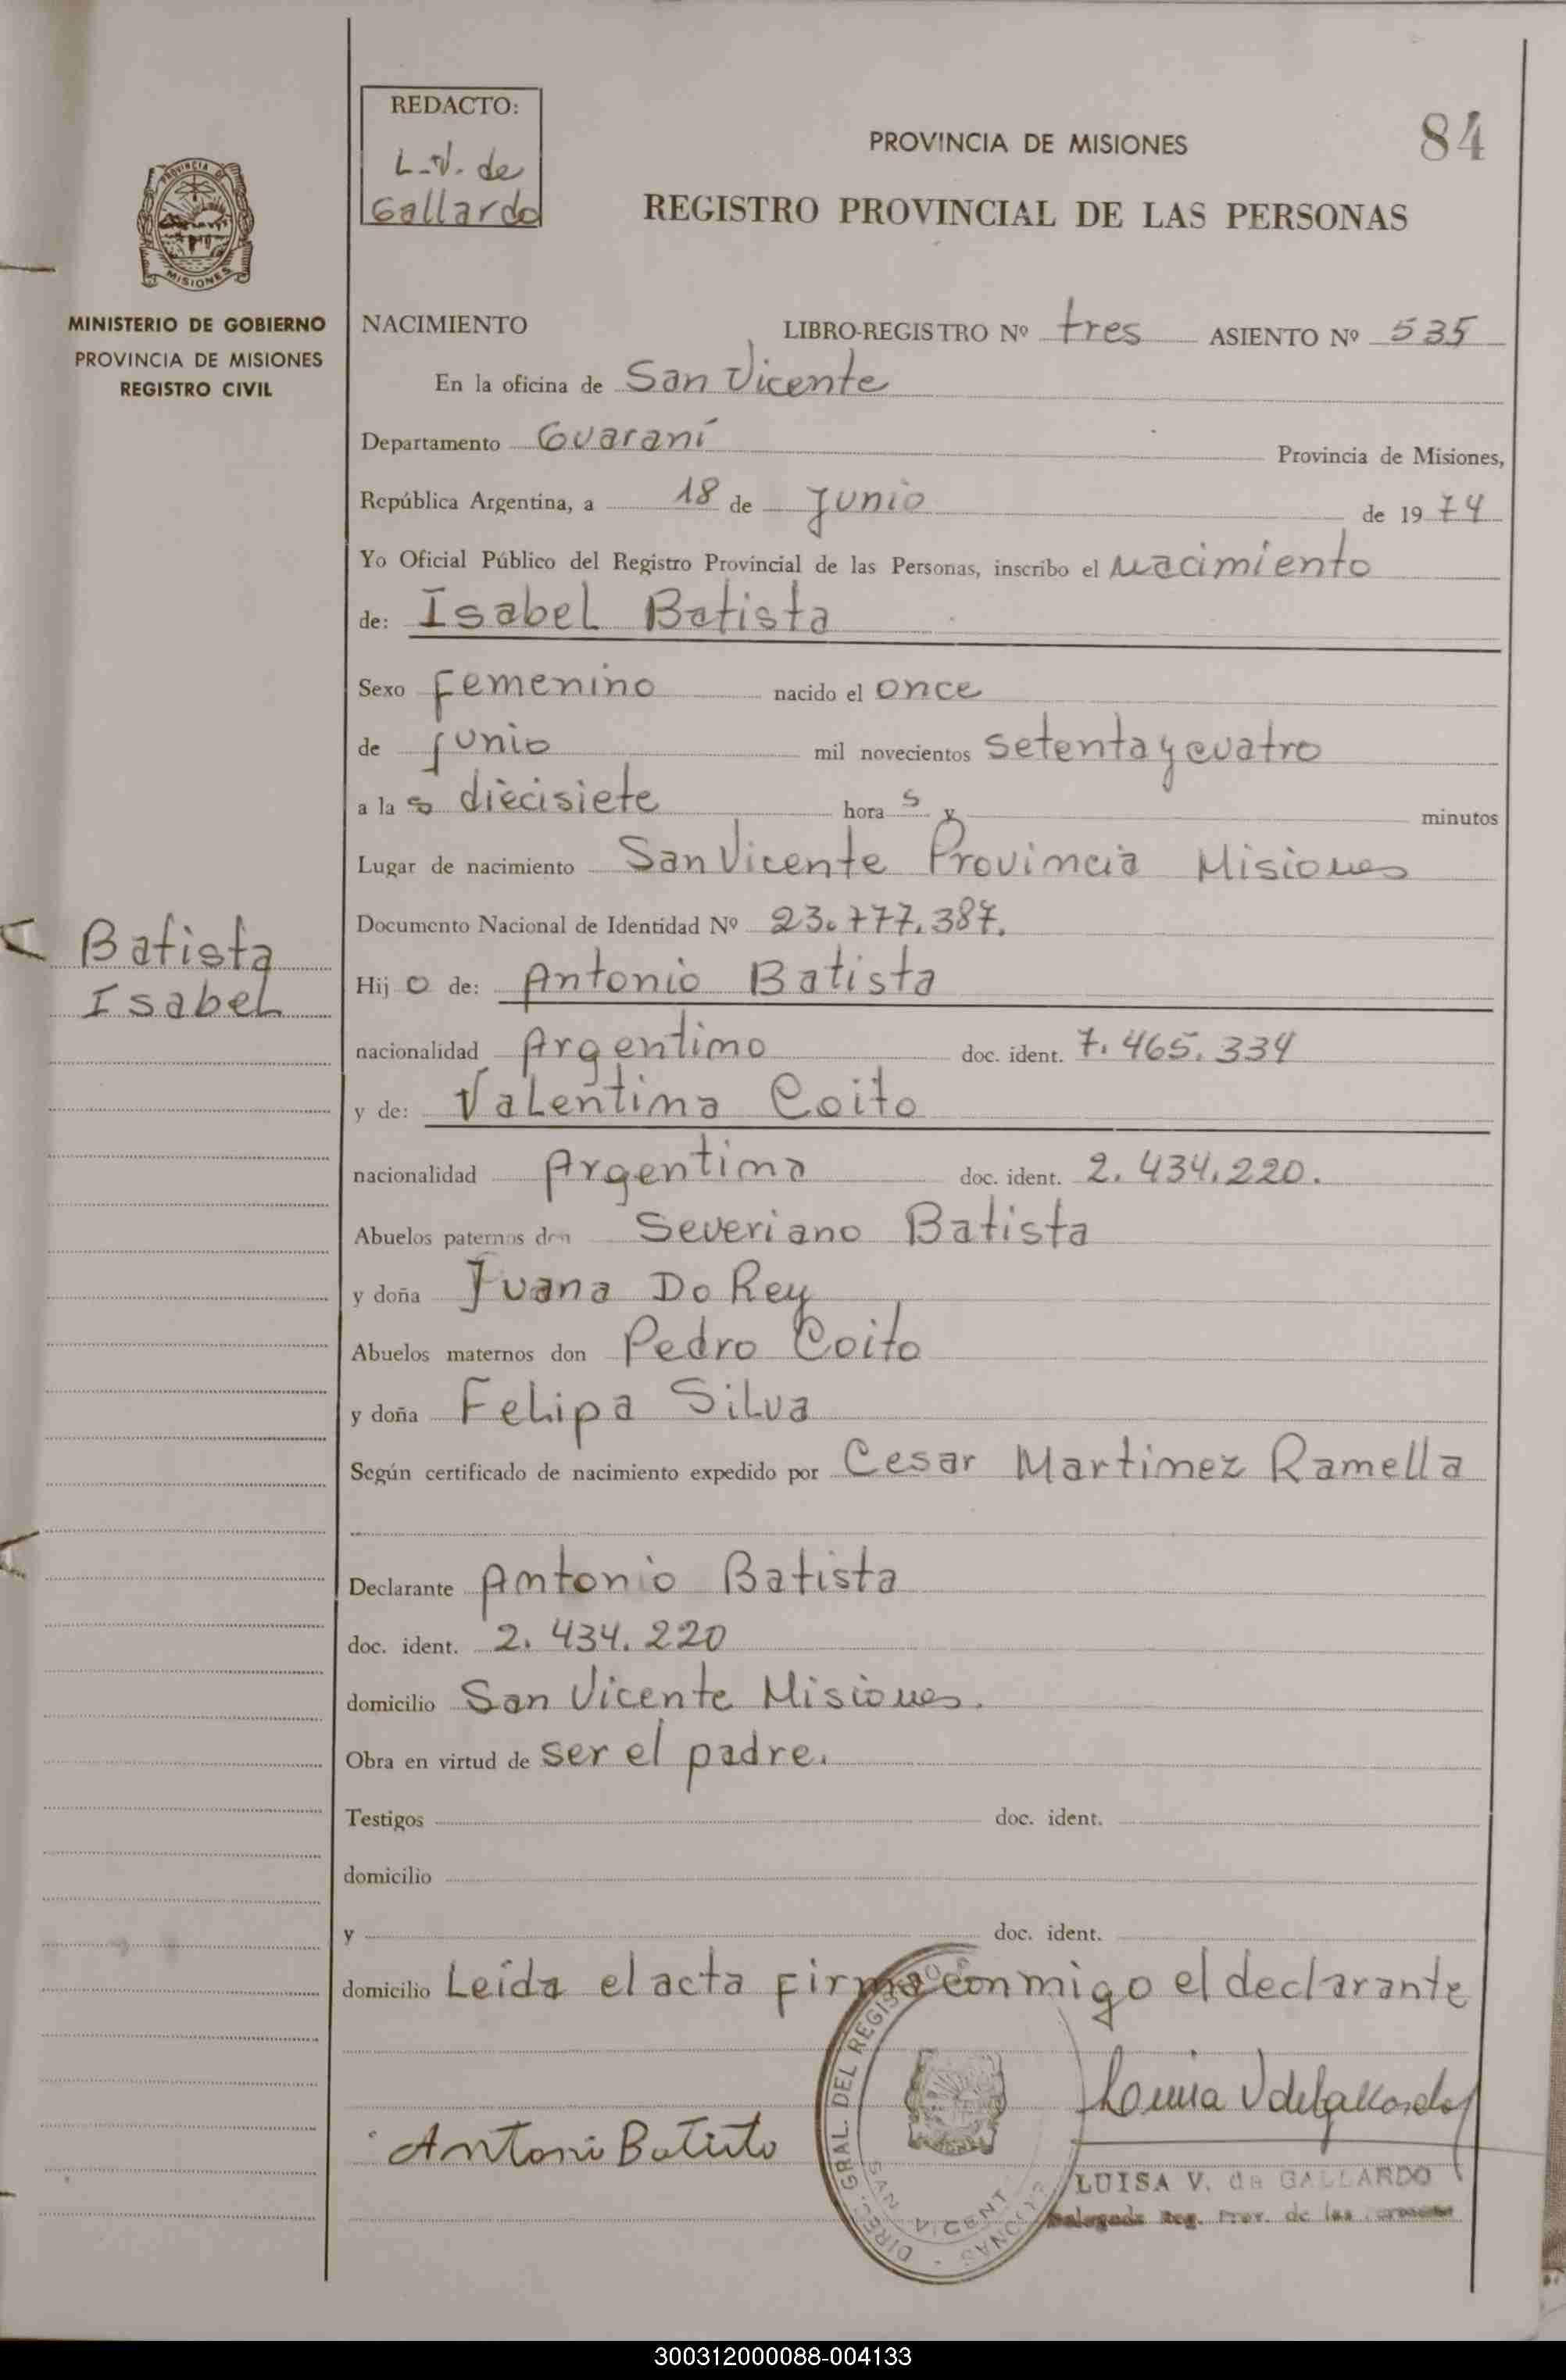 REDACTO:
L.V. de
Gallardo
84
PROVINCIA DE MISIONES
REGISTRO PROVINCIAL DE LAS PERSONAS
PROVINCIA DE
MISIONES
MINISTERIO DE GOBIERNO
PROVINCIA DE MISIONES
REGISTRO CIVIL
NACIMIENTO LIBRO-REGISTRO Nº tres ASIENTO Nº 535
En la oficina de San Vicente
Departamento Guaraní Provincia de Misiones,
República Argentina, a 18 de Junio de 1974
Yo Oficial Público del Registro Provincial de las Personas, inscribo el nacimiento
de: Isabel Batista
Sexo Femenino nacido el once
de junio mil novecientos setenta y cuatro
a las diecisiete horas y minutos
Lugar de nacimiento San Vicente Provincia Misiones
Documento Nacional de Identidad Nº 23.777.387.
Batista
Isabel
Hijo de: Antonio Batista
nacionalidad Argentino doc. ident. 7.465.334
y de: Valentina Coito
nacionalidad Argentina doc. ident. 2.434.220.
Abuelos paternos don Severiano Batista
y doña Juana Do Rey
Abuelos maternos don Pedro Coito
y doña Felipa Silva
Según certificado de nacimiento expedido por Cesar Martinez Ramella
Declarante Antonio Batista
doc. ident. 2.434.220
domicilio San Vicente Misiones.
Obra en virtud de ser el padre.
Testigos doc. ident.
domicilio
y doc. ident.
domicilio Leída el acta firma conmigo el declarante
Antoni Batisto
DIREC. GRAL. DEL REGISTRO
SAN VICENTE
Luisa V de Gallardo
LUISA V. de GALLARDO
Delegada Reg. Prov. de las Personas
300312000088-004133